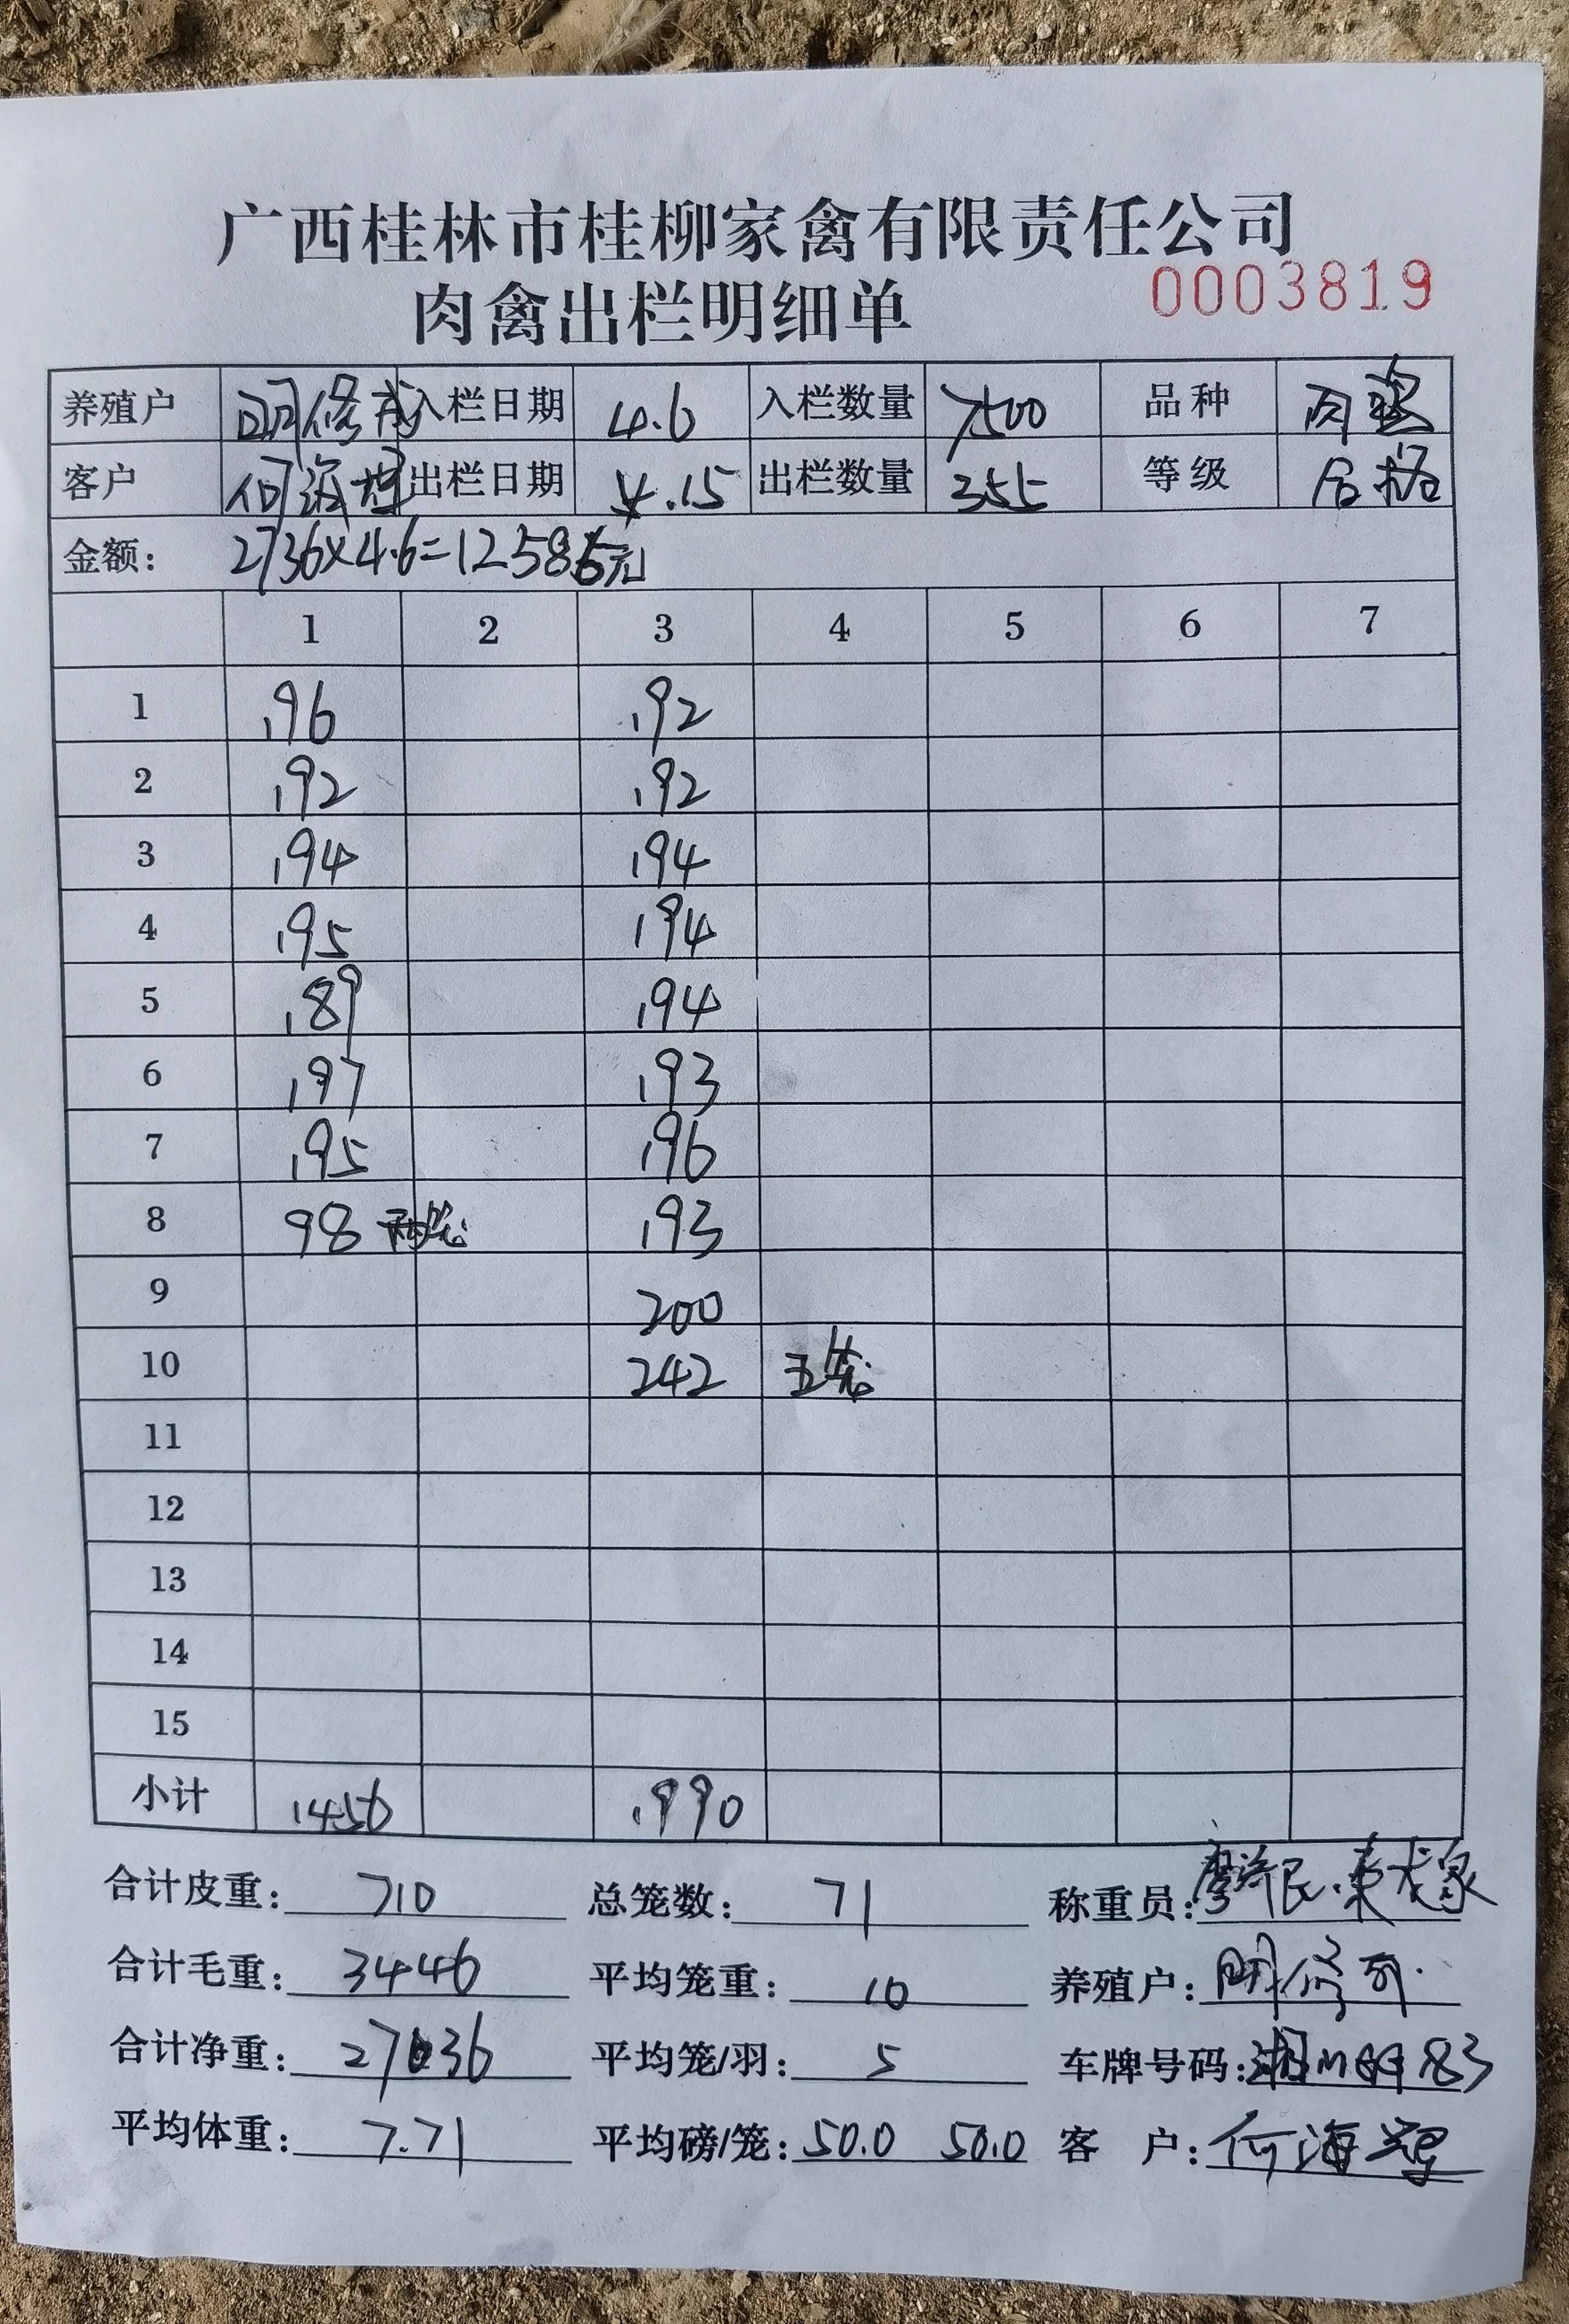 广西桂林市桂柳家禽有限责任公司
肉禽出栏明细单 0003819
养殖户 入栏日期 4.6 入栏数量 7500 品种 肉
客户 何海 出栏日期 4.15 出栏数量 355 等级 合格
金额: 2736×4.6=12586元
1 2 3 4 5 6 7
1 196 192
2 192 192
3 194 194
4 195 194
5 189 194
6 197 193
7 195 196
8 98 两笼 193
9 200
10 242 五笼
11
12
13
14
15
小计 1456 1990
合计皮重: 710 总笼数: 71 称重员:
合计毛重: 3446 平均笼重: 10 养殖户:
合计净重: 2736 平均笼/羽: 5 车牌号码: 湘
平均体重: 7.71 平均磅/笼: 50.0 50.0 客 户: 何海